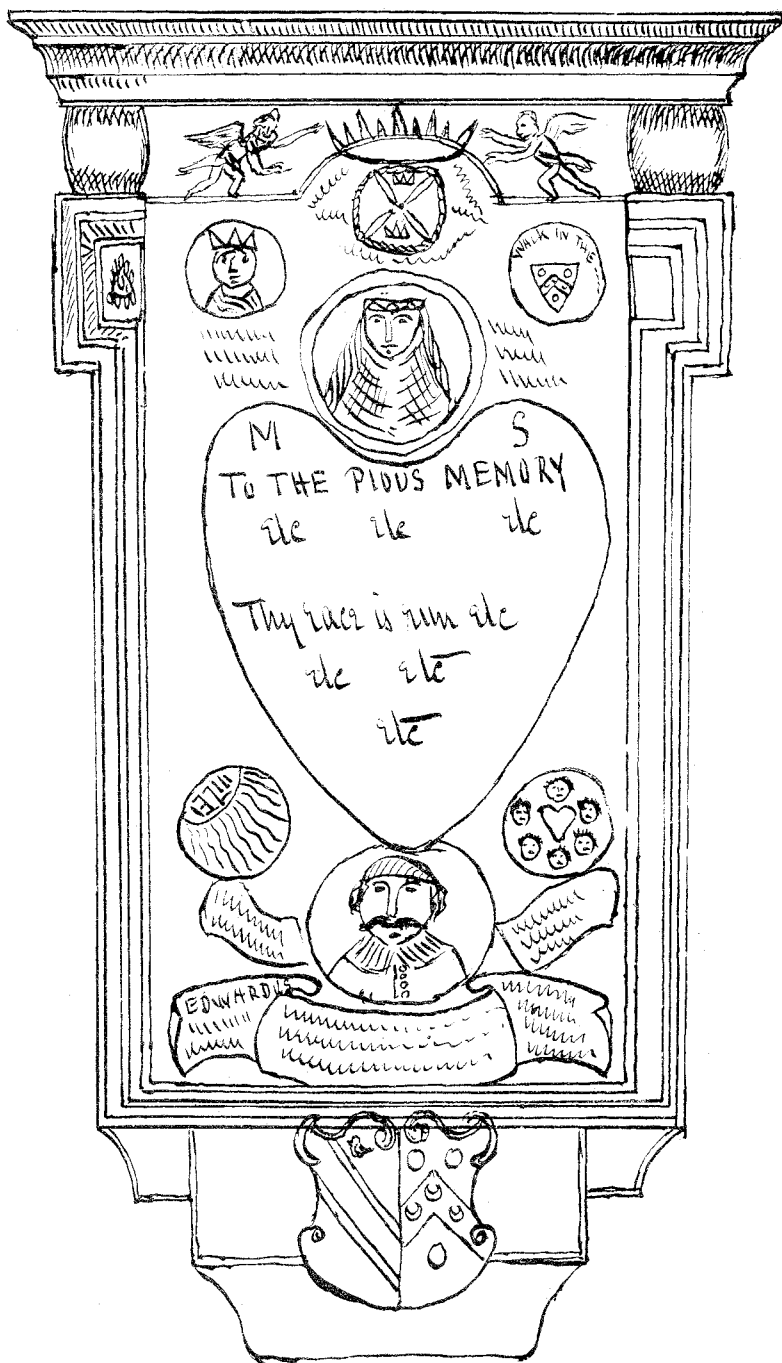 WALK IN THE
M S
TO THE PIOUS MEMORY
etc etc etc
Thy race is run etc
etc etc
etc
EDWARDUS